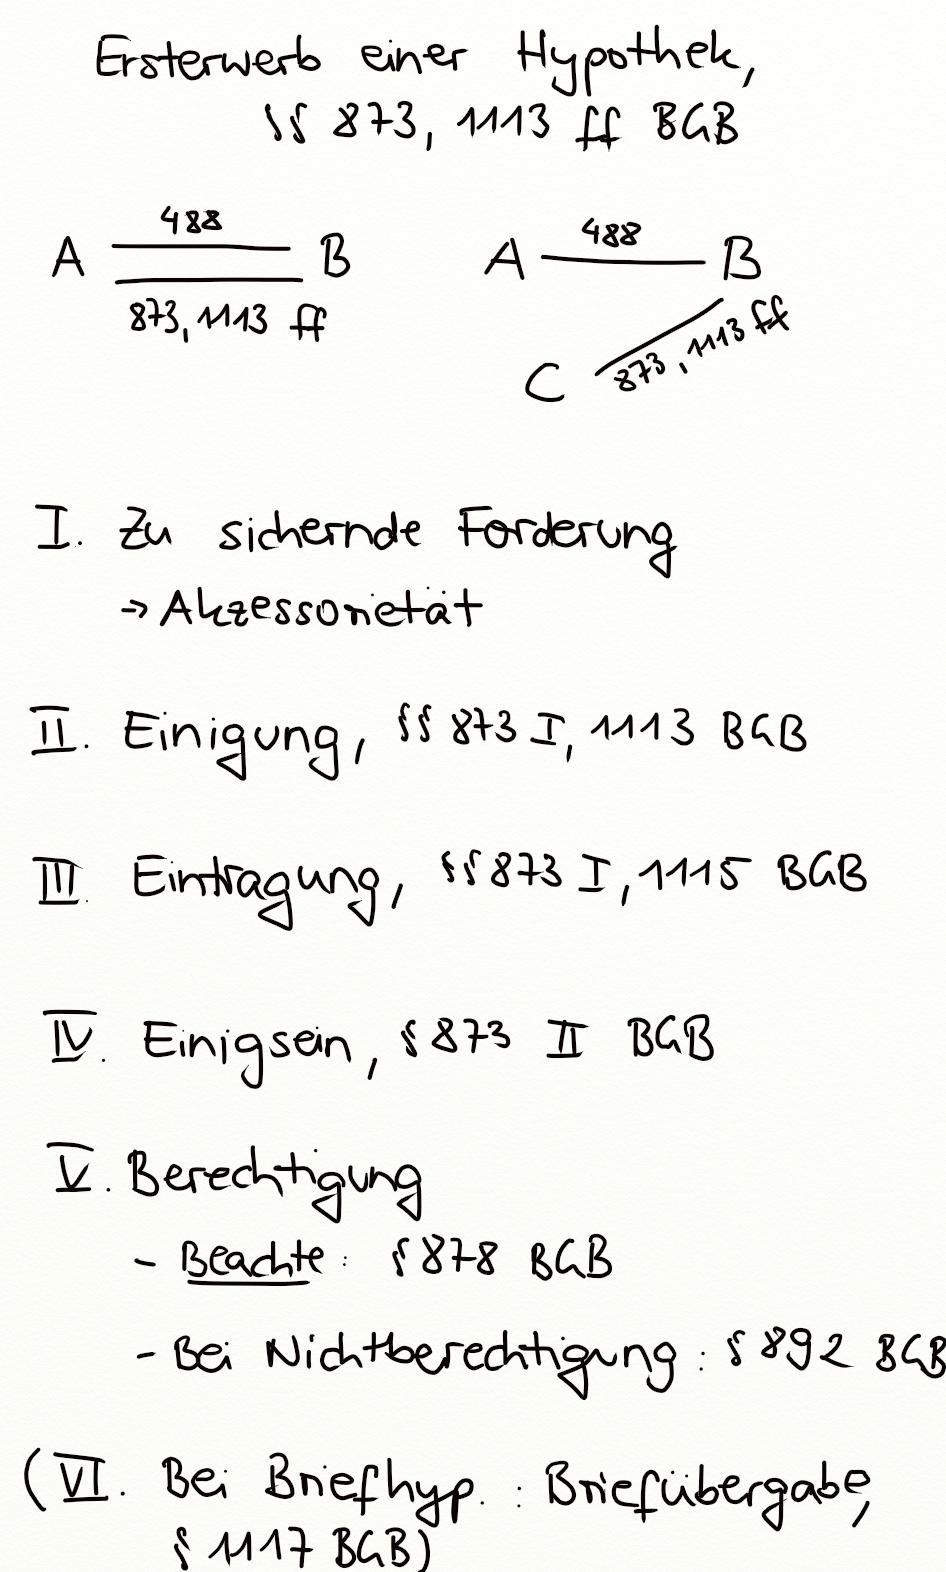 Ersterwerb einer Hypothek,
§§ 873, 1113 ff BGB
488
A B
873, 1113 ff
488
A B
873, 1113 ff
C
I. Zu sichernde Forderung
→ Akzessorietät
II. Einigung, §§ 873 I, 1113 BGB
III. Eintragung, §§ 873 I, 1115 BGB
IV. Einigsein, § 873 II BGB
V. Berechtigung
- Beachte: § 878 BGB
- Bei Nichtberechtigung: § 892 BGB
(VI. Bei Briefhyp.: Briefübergabe,
§ 1117 BGB)